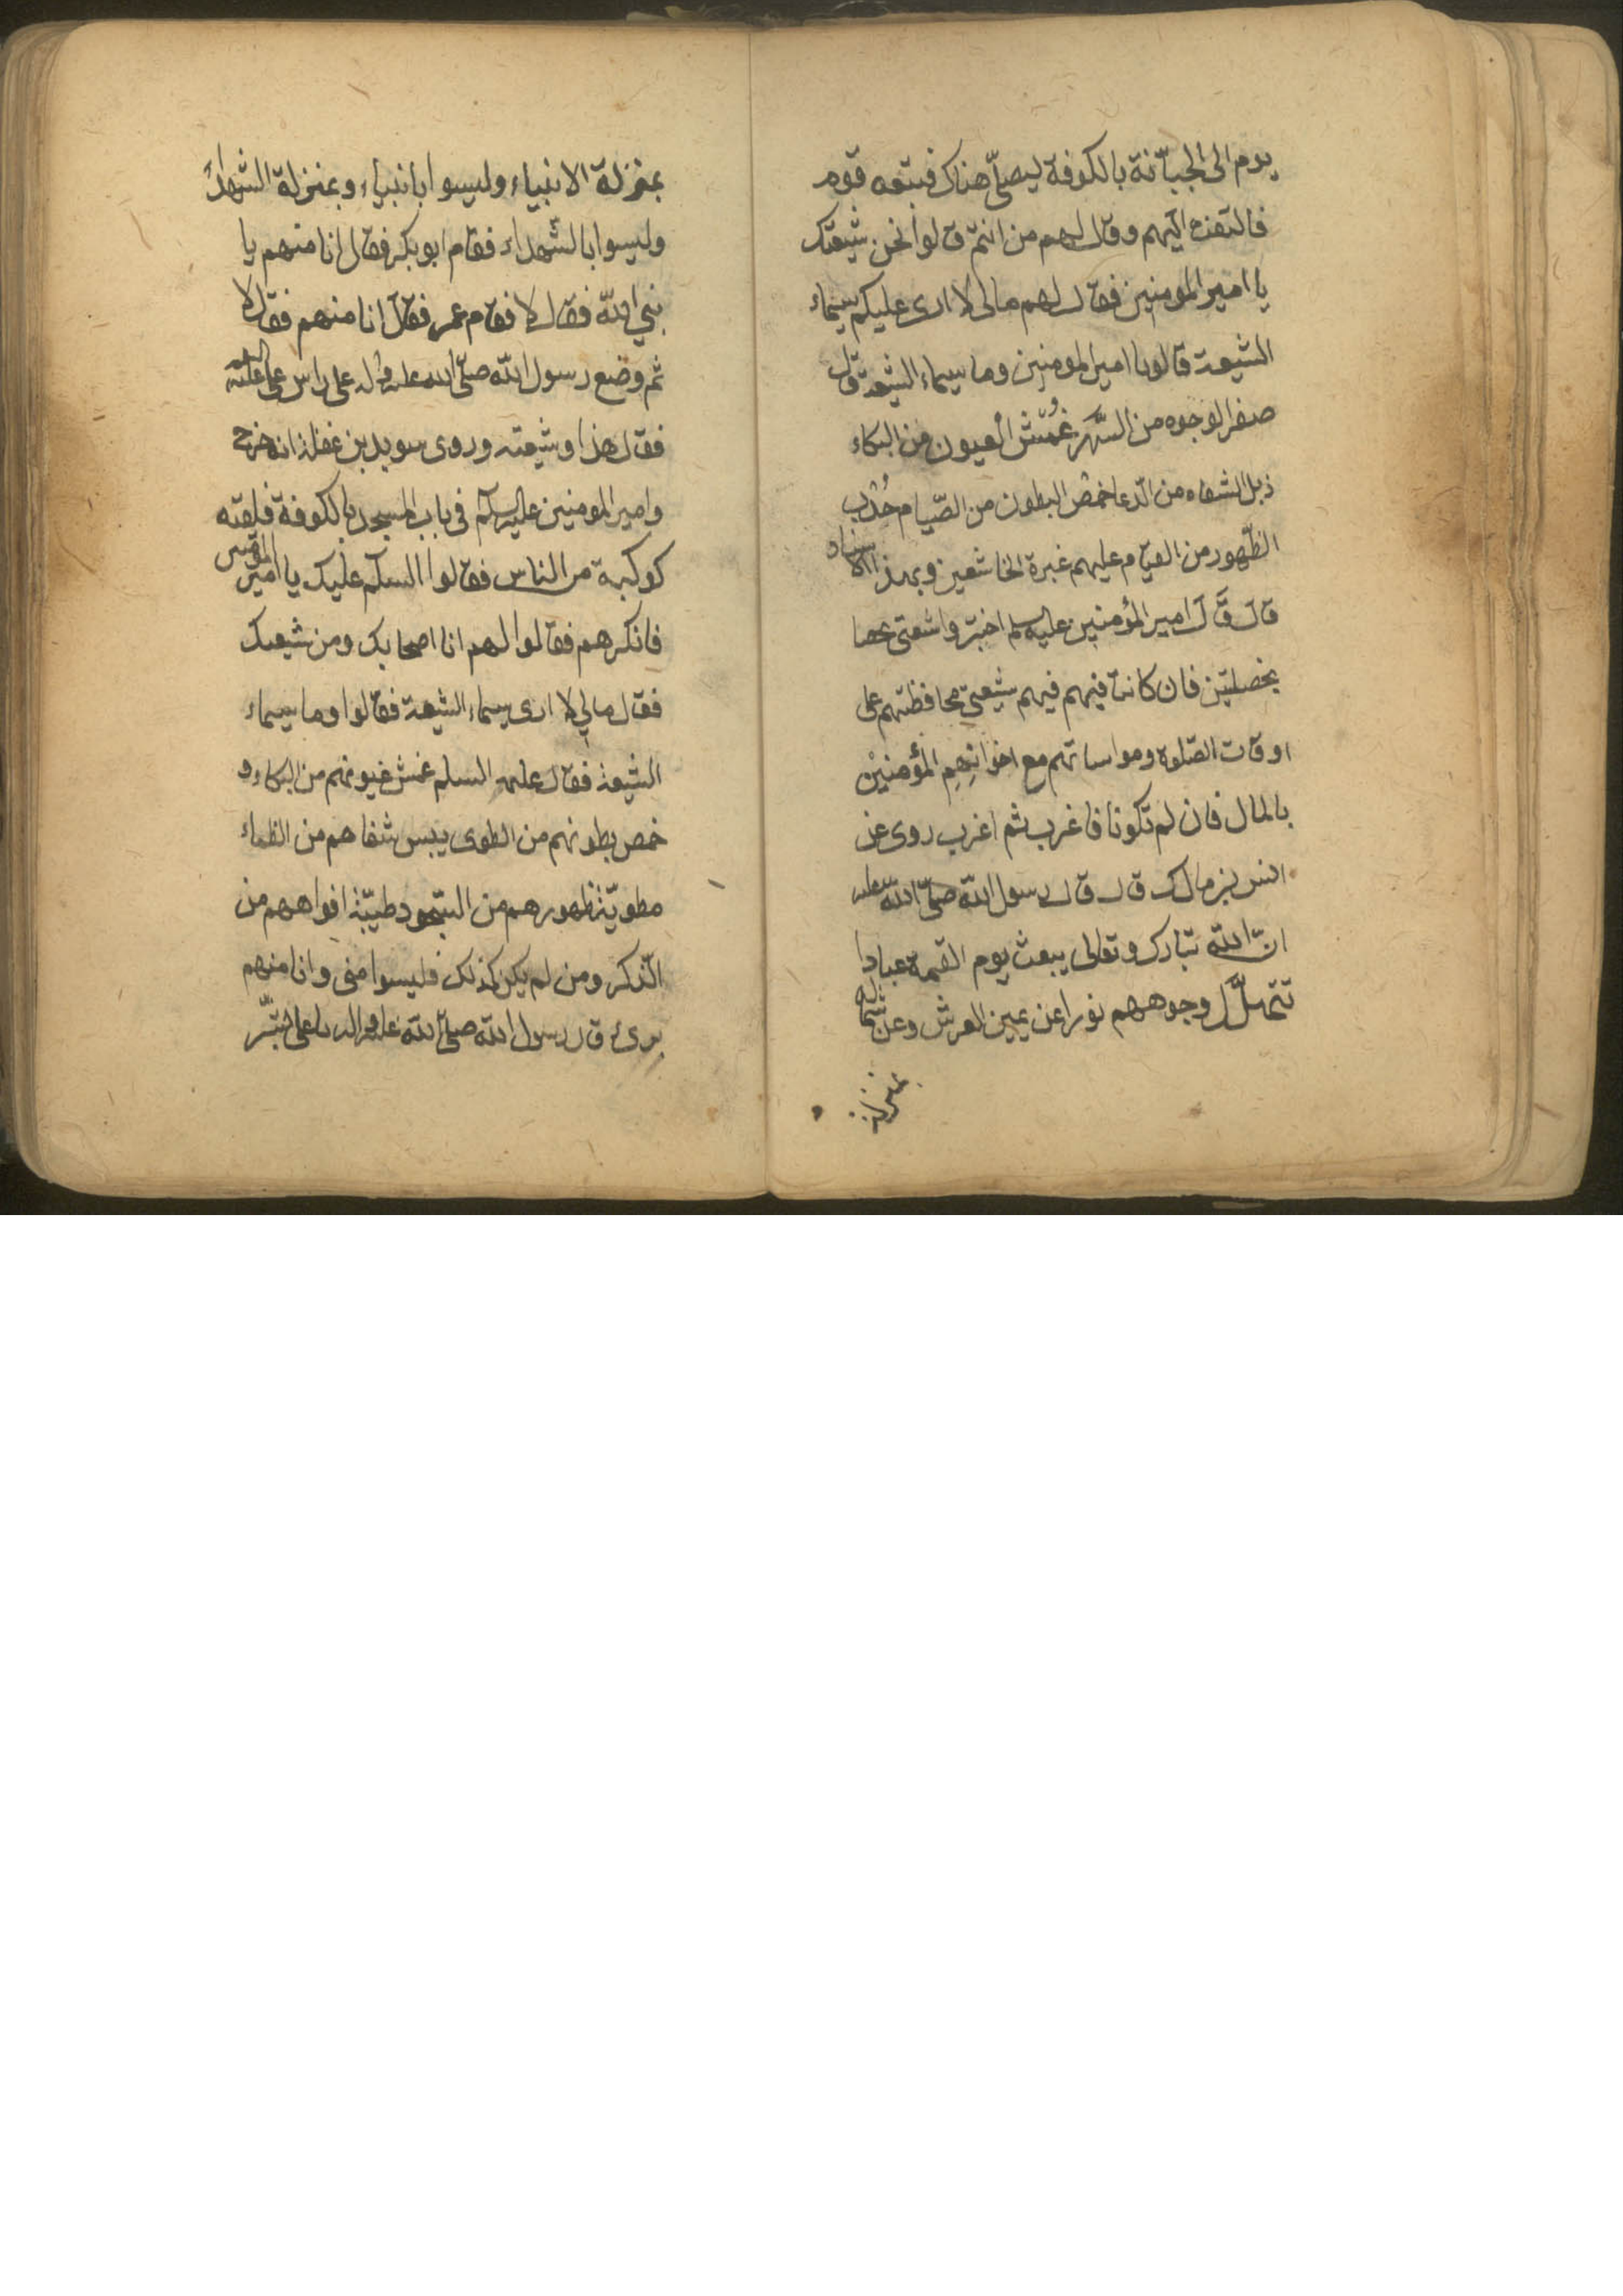 يوم الى الجبّانة بالكوفة ليصلّى هناك فتبعه قوم
فالتفت اليهم وقال لهم من انتم قالوا نحن شيعتك
يا امير المومنين فقال لهم مالى لا ارى عليكم سيماء
الشيعة قالوا يا امير المومنين وما سيماء الشيعة قال
صفر الوجوه من السَّهَر عُمّش العيون من البكاء
ذبل الشفاه من الدّعا خمص البطون من الصّيام حُدب
الظّهور من القيام عليهم غبرة الخاشعين وبهذا الاسناد
قال قال امير المؤمنين عليه السلم اختبروا شيعتى
بخصلتين فان كانتا فيهم فهم شيعتى محافظتهم على
اوقات الصّلوة ومواساتهم مع اخوانِهِم المؤمنيْن
بالمال فان لم تكونا فاغرب ثم اغرب روى عن
انس بن مالك قال قال رسول الله صلّى الله عليه
انّ الله تبارك وتعالى يبعث يوم القيمة عبادا
تتهلّل وجوههم نورا عن يمين العرش وعن شماله
بمنزلة
بمنزلة الانبياء وليسوا بانبياء وبمنزلة الشهداء
وليسوا بالشهداء فقام ابو بكر فقال انا منهم يا
نبي الله فقال لا فقام عمر فقال انا منهم فقال لا
ثم وضع رسول الله صلّى الله عليه وآله على راس على عليه السلم
فقال هذا وشيعته وروى سويد بن غفلة انه خرج
وامير المومنين عليه السلم فى باب المسجد بالكوفة فلقته
كوكبة من الناس فقالوا السلم عليك يا امير المؤمنين
فانكرهم فقالوا لهم انا اصحابك ومن شيعتك
فقال مالي لا ارى سيماء الشيعة فقالوا وما سيماء
الشيعة فقال عليه السلم عمش عيونهم من البكاء و
خمص بطونهم من الطوى يبس شفاههم من الظماء
مطويّة ظهورهم من السّجود طيّبة افواههم من
الذّكر ومن لم يكن كذلك فليسوا منى وانا منهم
برىء قال رسول الله صلّى الله عليه وآله يا على بشّر